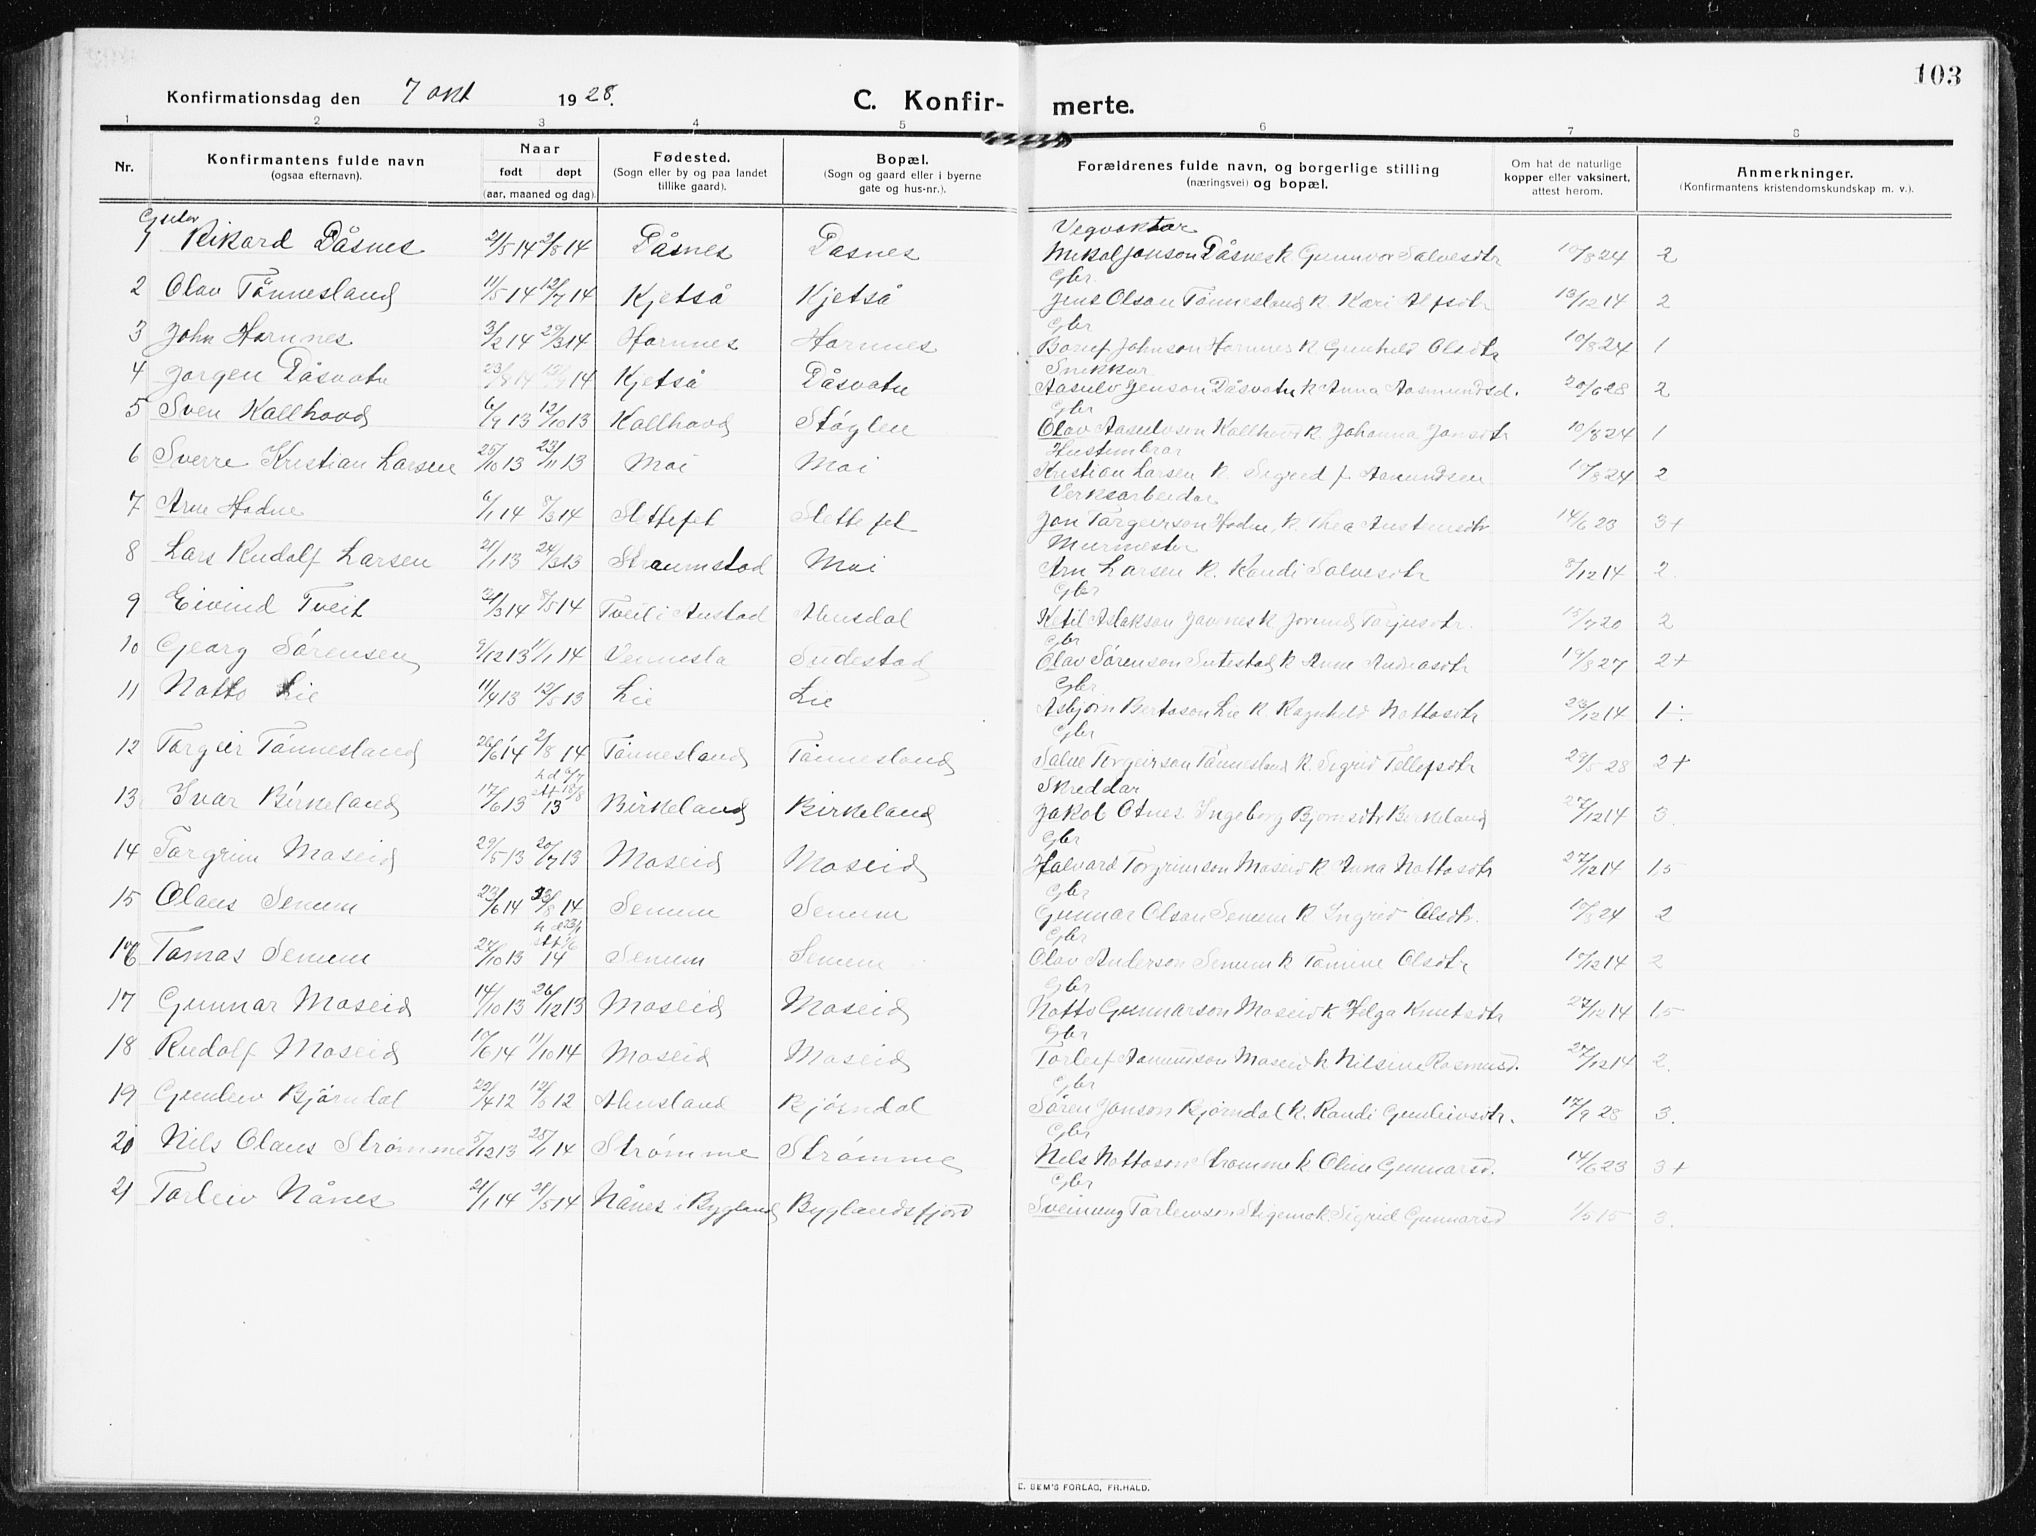 103
Konfirmationsdag den 7 okt 1928.
C. Konfir- merte.
1 2 3 4 5 6 7 8
Nr.
Konfirmantens fulde navn
(ogsaa efternavn).
Naar
født døpt
(aar, maaned og dag).
Fødested.
(Sogn eller by og paa landet
tillike gaard).
Bopæl.
(Sogn og gaard eller i byerne
gate og hus-nr.).
Forældrenes fulde navn, og borgerlige stilling
(næringsvei) og bopæl.
Om hat de naturlige
kopper eller vaksinert,
attest herom.
Anmerkninger.
(Konfirmantens kristendomskundskap m. v.).
Guter Vegvoktar
1 Rikard Dåsnes 21/5 14 2/8 14 Dåsnes Dasnes Mikal Jonson Dåsnes k Gunnvor Salvesdtr 10/8 24 2
Gbr.
2 Olav Tånnesland 11/5 14 12/7 14 Kjetså Kjetså Jens Olson Tånnesland k. Kari Alfsdtr 13/12 14 2
Gbr
3 John Hornnes 3/2 14 29/3 14 Hornnes Hornnes Johnson Hornnes k Gunhild Olsdtr 10/8 24 1
Snikkar
4 Jorgen Dåsvatn 14 14 Kjetså Dåsvatn Aasulv Jenson Dåsvatn k Anna Aasmundsd. 20/6 28 2
Gbr
5 Sven Kallhovd 6/9 13 12/10 13 Kallhovd Støylen Olav Aasulvson Kallhovd k. Johanna Jonsdtr 10/8 24 1
Hustembrar
6 Sverre Kristian Larsen 25/10 13 23/11 13 Moi Moi Kristian Larsen k. Sigrid f. Aamundsen 10/8 24 2
Verksarbeidar
7 Arne Hodne 6/1 14 8/3 14 Slettefet Slettefet Jon Targeirson Hodne, k. Thea Austensdtr 14/6 23 3+
Murmester
8 Lars Rudolf Larsen 21/1 13 24/3 13 Straumstad Moi Arn Larsen k. Randi Salvesdtr 8/12 14 2.
Gbr
9 Eivind Tveit 21/3 14 8/5 14 Tveit i Austad Ketil Aslakson k Jorund Torjusdtr. 15/7 20 2
Gbr
10 Georg Sørensen 9/12 13 11/1 14 Vennesla Sutestad Olav Sørenson Sutestad k Anne Andreasdtr 19/8 27 2+
Gbr.
11 Notto Lie 11/4 13 12/5 13 Lie Lie Asbjørn Bertoson Lie k. Ragnhild Nottosdtr 23/12 14 1÷
Gbr
12 Targeir Tånnesland 26/6 14 2/8 14 Tånnesland Tånnesland Salve Torgeirson Tånnesland k. Sigrid Tellefsdtr 29/5 28 2+
hd 6/7 Skreddar
st 18/8
13 Ivar Birkeland 17/6 13 13 Birkeland Birkeland Jakob Otnes Ingeborg Bjornsdtr Birkeland 27/12 14 3.
Gbr
14 Targrim Moseid 29/5 13 20/7 13 Moseid Moseid Halvard Torgrimson Moseid k Anna Nottosdtr 27/12 14 1,5
Gbr
15 Olaus Senum 23/6 14 23/8 14 Senum Senum Gunnar Olson Senum k Ingrid Olsdtr. 10/8 24 2
Gbr
16 Tomas Senum 27/10 13 14 Senum Senum Olav Anderson Senum k Tomine Olsdtr 10/12 14 2
Gbr
17 Gunnar Moseid 14/10 13 26/12 13 Moseid Moseid Notto Gunnarson Moseid k Helga Knutsdtr 27/12 14 1,5
Gbr
18 Rudolf Moseid 17/6 14 11/10 14 Moseid Moseid Torleif Aamundson Moseid k Nilsine Rasmusd. 27/12 14 2.
Gbr
19 Gunleiv Bjørndal 22/4 12 12 Bjørndal Søren Jonson Bjørndal k. Randi Gunleivsdtr. 17/9 28 3.
Gbr
20 Nils Olaus Strømme 5/12 13 25/1 14 Strømme Strømme Nils Nottoson Strømme k Oline Gunnarsd. 14/6 23 3+
Gbr
21 Torleiv Nånes 21/1 14 21/5 14 Nånes i Bygland Byglandsfjord Sveinung Torleivson k Sigrid Gunnarsd 1/5 15 3.
E. SEM'S FORLAG, FR.HALD.